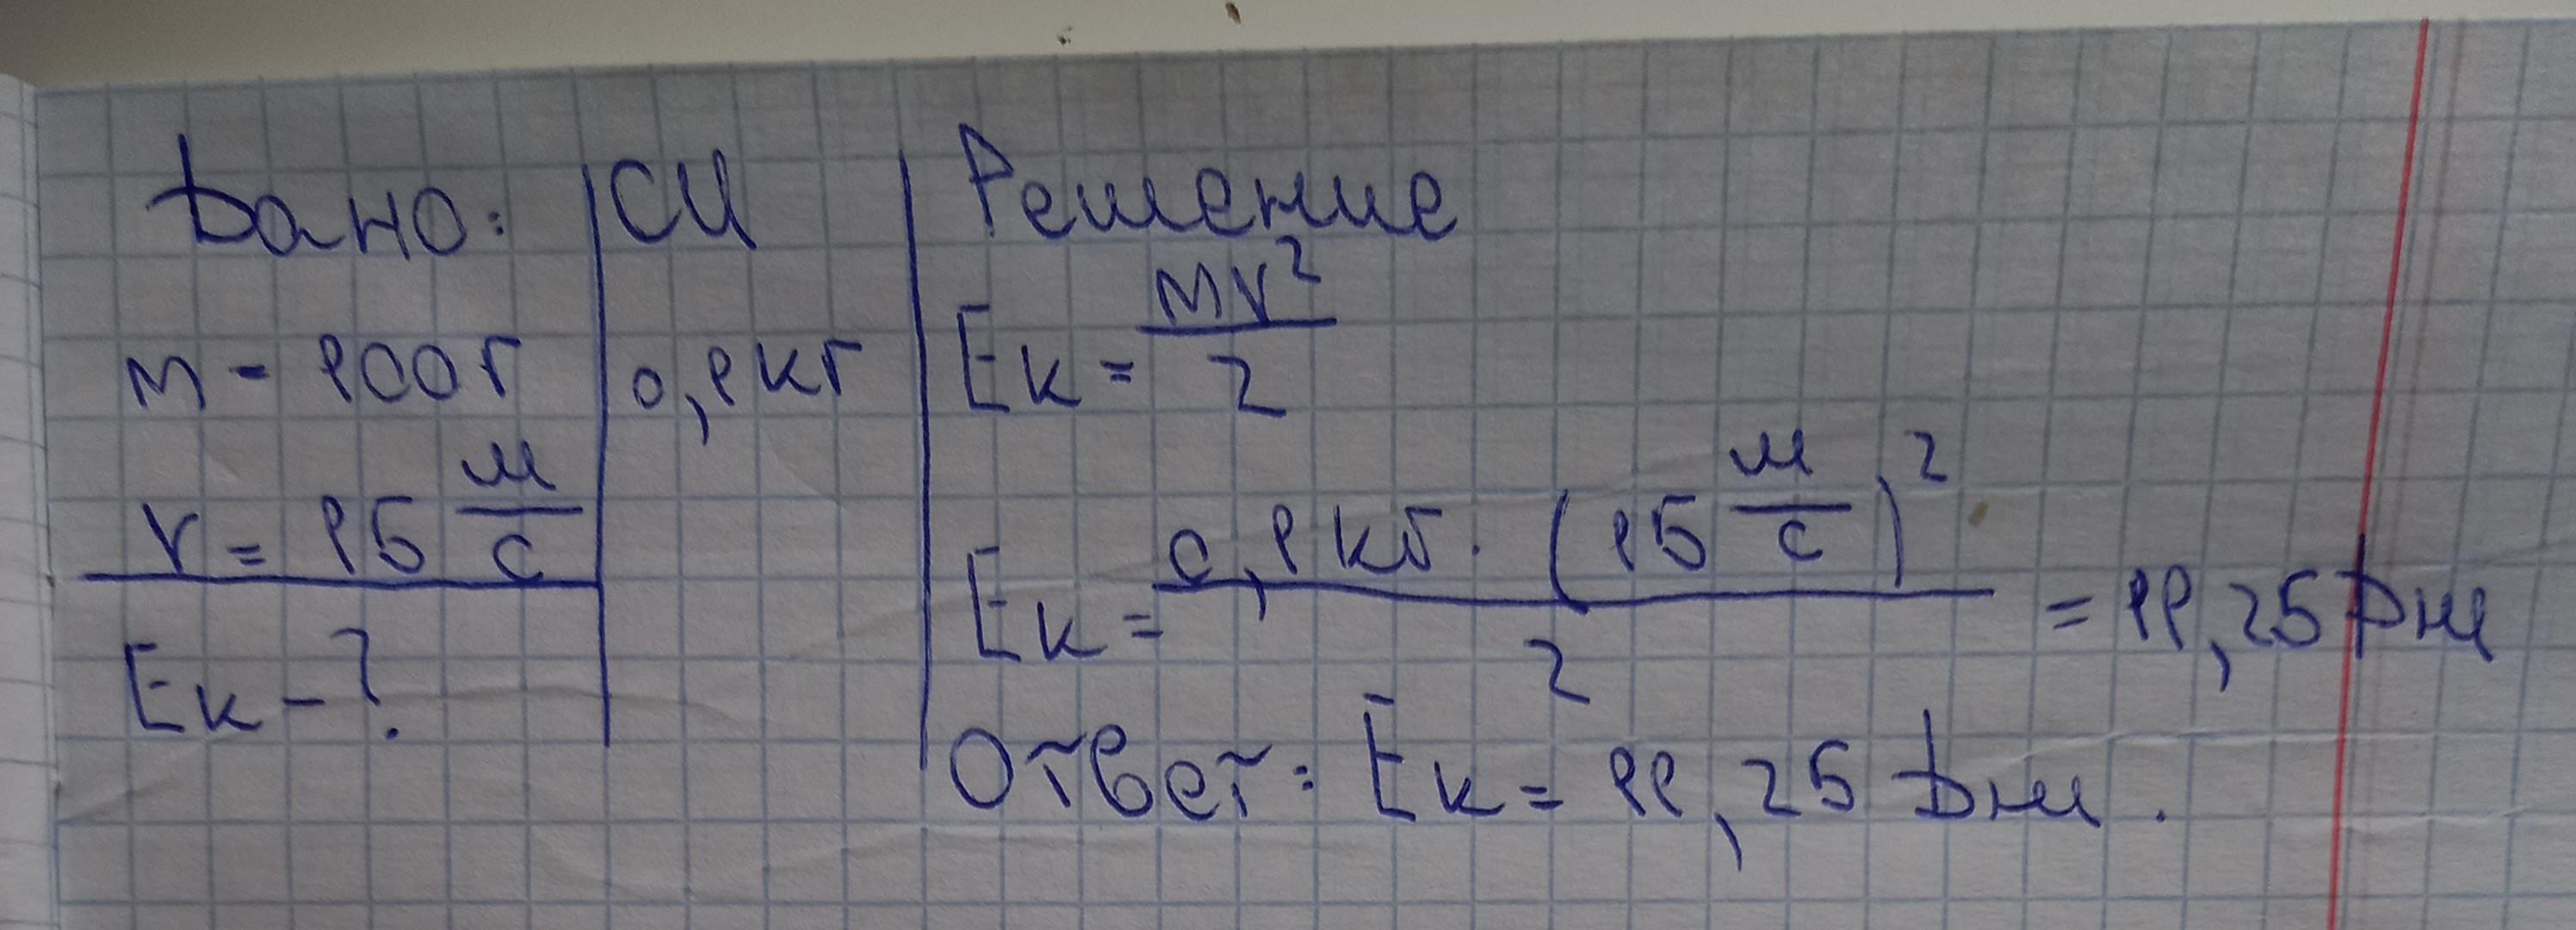 Дано: СИ Решение
m - 100г 0,1кг Eк = mv²/2
v = 15 м/с
Eк = 0,1кг · (15 м/с)²/2 = 11,25 Дж
Eк - ?
Ответ: Eк = 11,25 Дж.